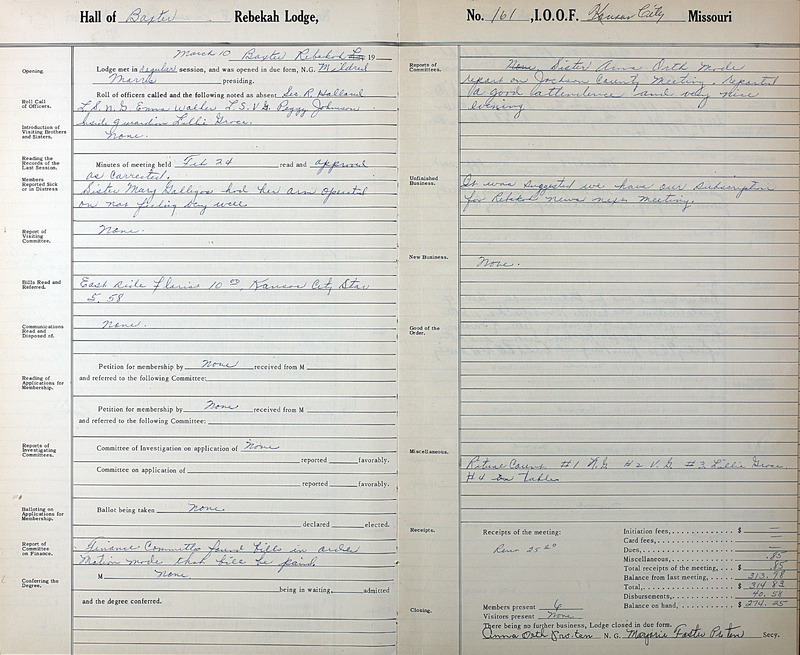 Hall of Baxter Rebekah Lodge,
March 10 Baxter Rebekah 19
Opening.
Lodge met in regular session, and was opened in due form, N.G. Mildred
Morris presiding.
Roll Call
of Officers.
Roll of officers called and the following noted as absent Sec. R. Holland
L.S. N.G. Emma Walker L.S.V.G. Peggy Johnson
Inside guardian Lillie Grose.
Introduction of
Visiting Brothers
and Sisters.
None.
Reading the
Records of the
Last Session.
Minutes of meeting held Feb 24 read and approved
as corrected.
Members
Reported Sick
or in Distress
Sister Mary Gallegos had her arm operated
on not feeling very well
Report of
Visiting
Committee.
None.
Bills Read and
Referred.
East Side Florist 10 00, Kansas City Star
5.58
Communications
Read and
Disposed of.
None.
Reading of
Applications for
Membership.
Petition for membership by None received from M
and referred to the following Committee:
Petition for membership by None received from M
and referred to the following Committee:
Reports of
Investigating
Committees.
Committee of Investigation on application of None
reported favorably.
Committee on application of
reported favorably.
Balloting on
Applications for
Membership.
Ballot being taken None
declared elected.
Report of
Committee
on Finance.
Finance Committe found bills in order
Motion made that bill be paid.
Conferring the
Degree.
M None
being in waiting, admitted
and the degree conferred.
No. 161, I.O.O.F. Kansas City Missouri
Reports of
Committees.
None. Sister Anna Orth Made
report on Jackson County Meeting. Reported
a good attendence and very nice
evening
Unfinished
Business.
It was suggested we have our subscription
for Rebekah News next meeting.
New Business.
None.
Good of the
Order.
Miscellaneous.
Ritual Count #1 N.G. #2 V.G. #3 Lillie Grose
#4 on Tables
Receipts.
Receipts of the meeting:
25 00
Initiation fees, $
Card fees,
Dues,
Miscellaneous, .85
Total receipts of the meeting, $ .85
Balance from last meeting, 313.98
Total, $ 314 83
Disbursements, 40.58
Balance on hand, $ 274.25
Members present 6
Visitors present None
Closing.
There being no further business, Lodge closed in due form.
Anna Orth N. G. Marjorie Foster Secy.